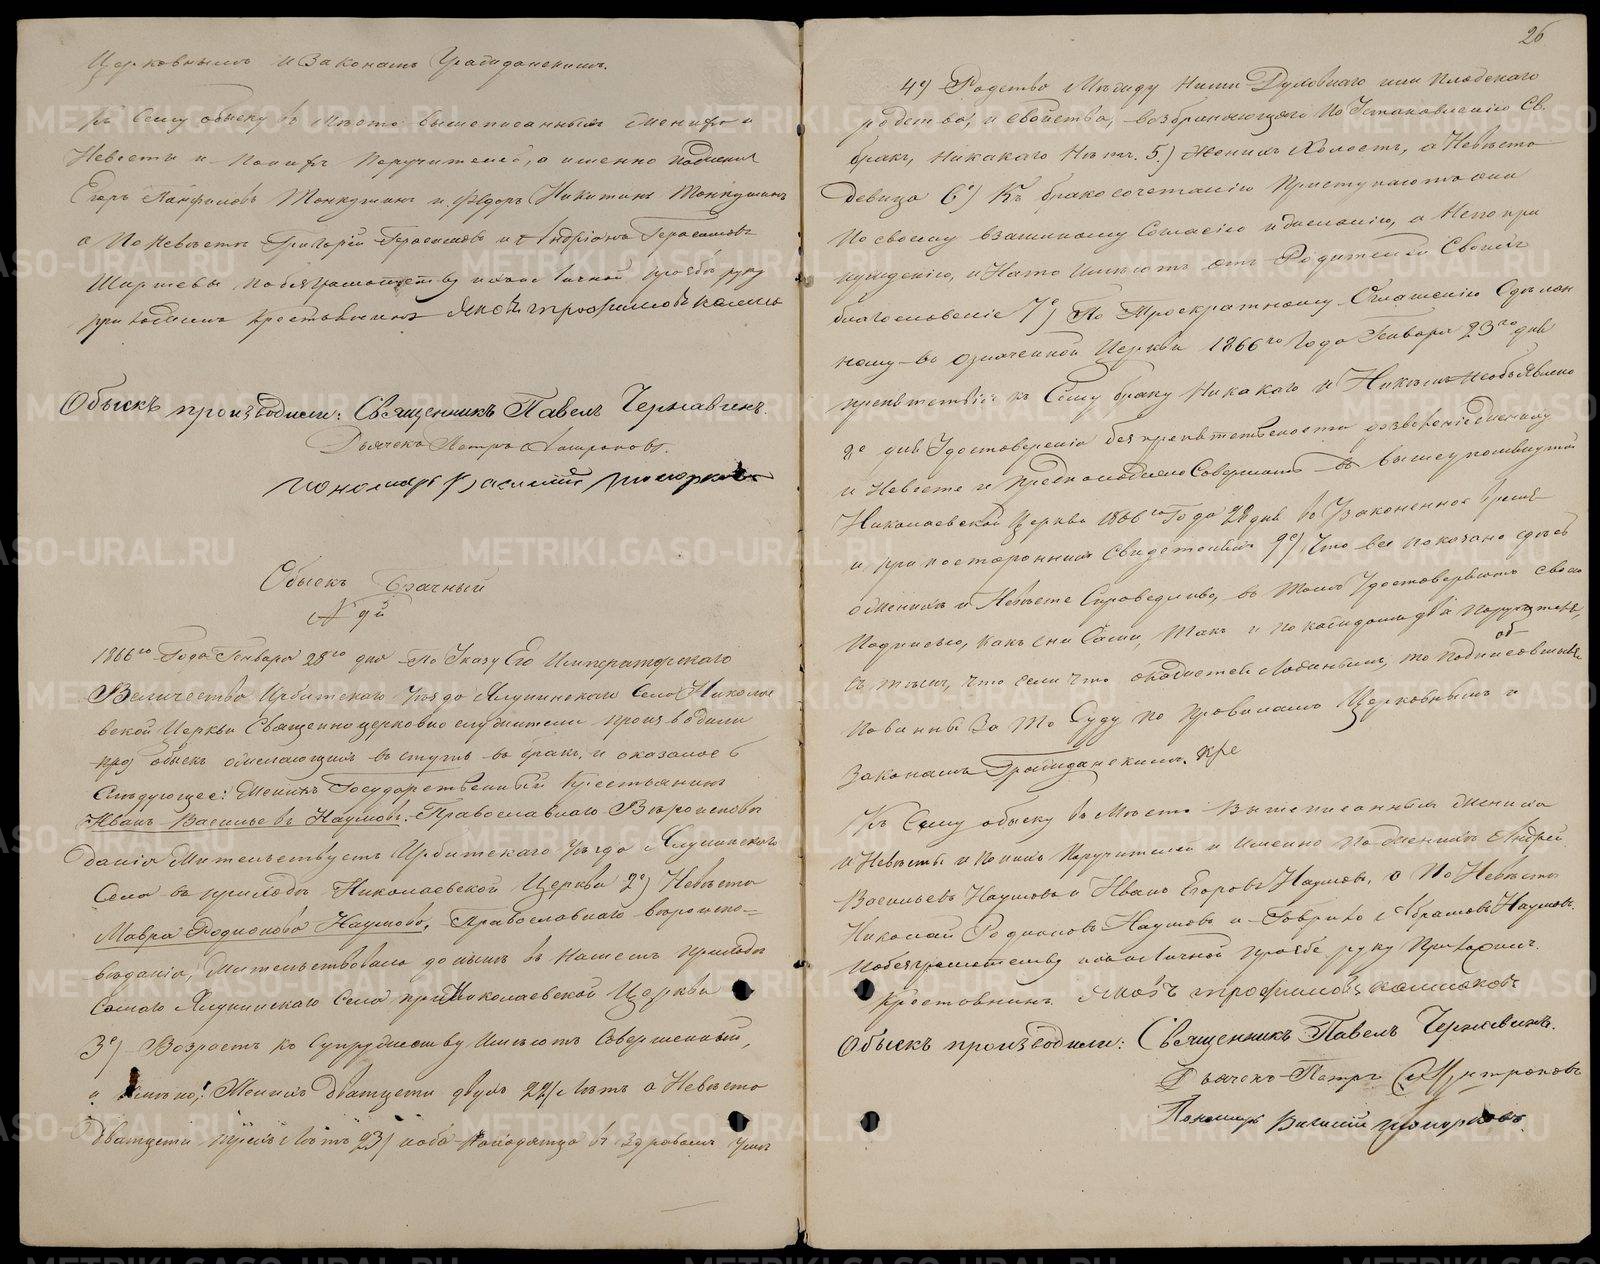 Церковнымъ и Законамъ Гражданскимъ.
Къ сему обыску въ место вышеписанныхъ жениха и
Невесты и по нихъ Поручителей, а именно по жениху
Егоръ Панфиловъ Тонкушинъ и Ѳедоръ Никитинъ Тонкушинъ
а по Невесты Григорій Герасимовъ и Андріянъ Герасимовъ
Ширшевы по безграмотству и по ихъ личной прозьбы руку
приложилъ крестьянинъ Яковъ Трофимовъ
Обыскъ производили: Священникъ Павелъ Чернавинъ.
Дьячекъ Петръ
Пономарь Василий
Обыскъ Брачный
№ 9й
1866го Года Генваря 28го дня По Указу Его Императорскаго
Величества, Ирбитскаго Уѣзда Ялунинскаго Села Николаев
вской Церкви Священноцерковнослужители производили
обыскъ желающихъ вступить въ бракъ, и оказалось
Слѣдующее: Женихъ Государственный Крестьянинъ
Иванъ Васильевъ Наумовъ, Православнаго Вѣроисповѣ
данія Жительствуетъ Ирбитскаго Уѣзда Ялунинскаго
Села въ приходѣ Николаевской Церкви 2е) Невѣста
Мавра Родионова Наумова, Православнаго вѣроиспо=
вѣданія, Жительствовала до нынѣ въ нашемъ приходѣ
Самаго Ялунинскаго Села при Николаевской Церкви
3е) Возрастъ къ Супружеству Имѣютъ Совершенный,
и имѣнно: Женихъ дватцети двухъ 22/ лѣтъ а Невѣста
дватцети трехъ лѣтъ 23/ оба находятца въ здравомъ Умѣ
26
4е) Родство Между Ними Духовнаго или плотскаго
родства, и свойства, возбраняющаго по Установленію Св.
бракъ, никакаго Нетъ. 5.) Женихъ Холостъ, а Невѣста
девица 6е) Къ бракосочетанію Приступаютъ они
по своему взаимному Согласію и желанію, а Не по при
нужденію, и На то имеютъ отъ Родителей Своихъ
благословеніе 7е) По Троекратному Оглашенію Сдѣлан
ному въ означенной Церкви 1866го Года Генваря 23го дня
препятствія къ Сему браку Никакаго и Никѣмъ необъявлено
8е для Удостоверенія безпрепятственности
и Невесте и Совершить въ вышеупомянутой
Николаевской Церкви 1866го Года 28 дня во Узаконенное время
и при постороннихъ Свидетеляхъ 9е) Что все показано здѣсь
о женихѣ и Невесте Справедливо, въ томъ Удостоверяютъ своею
Подписью, какъ они Сами, такъ и по каждому два Поручителя,
съ темъ, что если что окажется ложнымъ, то подписавшіяся
повинны за то Суду по правиламъ Церковнымъ и
Законамъ Гражданскимъ.
Къ Сему обыску въ место Вышеписанныхъ Жениха
и Невесты и по нихъ Поручителей и Именно по женихѣ Андрей
Васильевъ Наумовъ и Иванъ Егоровъ Наумовъ, а По Невѣсте
Николай Родионовъ Наумовъ и Гаврило Абрамовъ Наумовъ.
по безграмотству и по ихъ личной прозьбе руку Приложилъ.
Крестьянинъ Яковъ Трофимовъ
Обыскъ производили: Священникъ Павелъ Чернавинъ.
Дьячекъ Петръ
Пономарь Василий
METRIKI.GASO-URAL.RU